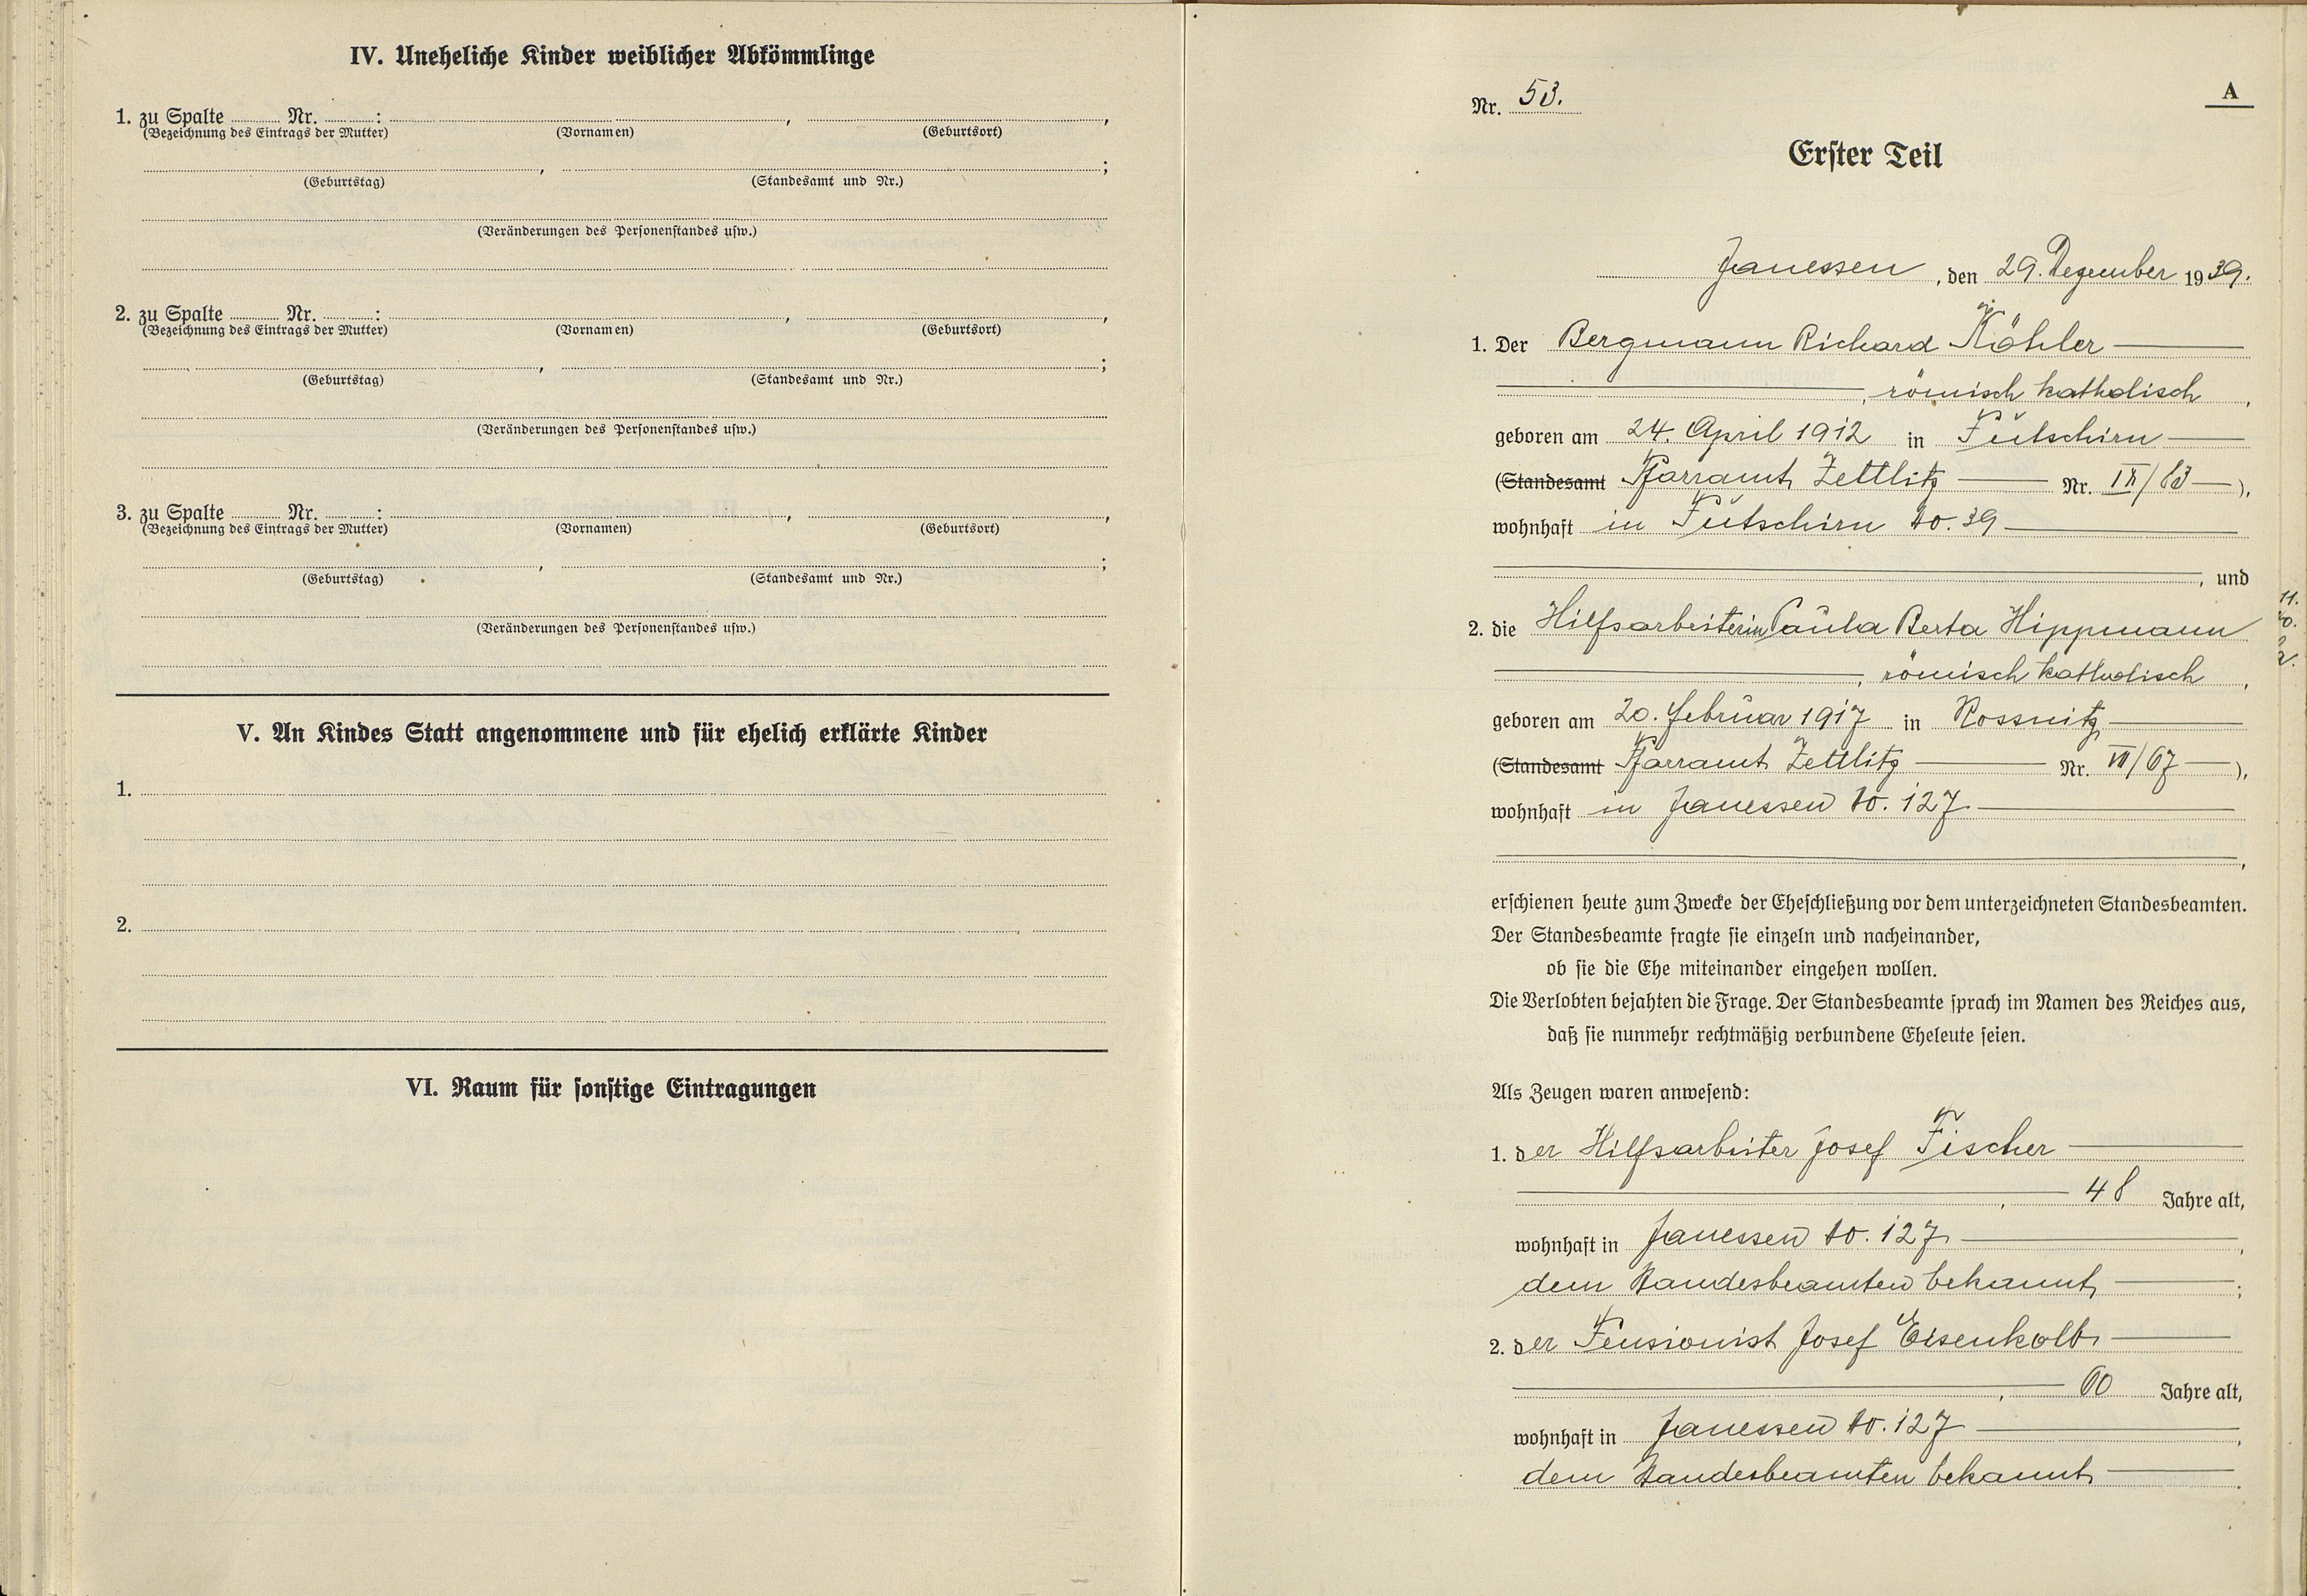 IV. Uneheliche Kinder weiblicher Abkömmlinge
1. zu Spalte Nr. : , ,
(Bezeichnung des Eintrags der Mutter) (Vornamen) (Geburtsort)
, ;
(Geburtstag) (Standesamt und Nr.)
(Veränderungen des Personenstandes usw.)
2. zu Spalte Nr. : , ,
(Bezeichnung des Eintrags der Mutter) (Vornamen) (Geburtsort)
, ;
(Geburtstag) (Standesamt und Nr.)
(Veränderungen des Personenstandes usw.)
3. zu Spalte Nr. : , ,
(Bezeichnung des Eintrags der Mutter) (Vornamen) (Geburtsort)
, ;
(Geburtstag) (Standesamt und Nr.)
(Veränderungen des Personenstandes usw.)
V. An Kindes Statt angenommene und für ehelich erklärte Kinder
1.
2.
VI. Raum für sonstige Eintragungen
A
Nr. 53.
Erster Teil
Janessen, den 29. Dezember 1939.
1. Der Bergmann Richard Köhler
, römisch katholisch,
geboren am 24. April 1912 in Putschirn
(Standesamt Pfarramt Zettlitz Nr. IX/83),
wohnhaft in Putschirn No. 39
, und
2. die Hilfsarbeiterin Paula Berta Hippmann
, römisch katholisch,
geboren am 20. Februar 1917 in Rossnitz
(Standesamt Pfarramt Zettlitz Nr. VII/67),
wohnhaft in Janessen No. 127
,
erschienen heute zum Zwecke der Eheschließung vor dem unterzeichneten Standesbeamten.
Der Standesbeamte fragte sie einzeln und nacheinander,
ob sie die Ehe miteinander eingehen wollen.
Die Verlobten bejahten die Frage. Der Standesbeamte sprach im Namen des Reiches aus,
daß sie nunmehr rechtmäßig verbundene Eheleute seien.
Als Zeugen waren anwesend:
1. der Hilfsarbeiter Josef Fischer
, 48 Jahre alt,
wohnhaft in Janessen No. 127,
dem Standesbeamten bekannt;
2. der Pensionist Josef Eisenkolb
, 60 Jahre alt,
wohnhaft in Janessen No. 127,
dem Standesbeamten bekannt.